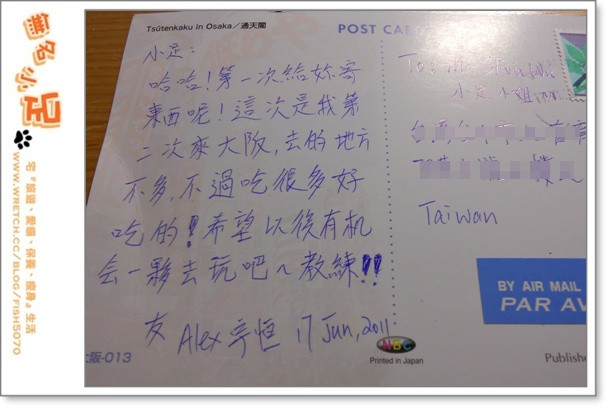 無名小足
宅『旅遊、愛貓、保養、瘦身』生活
WWW.WRETCH.CC/BLOG/FISH5070
Tsūtenkaku in Osaka／通天閣
POST CAR
小足：
哈哈！第一次給妳寄
東西呢！這次是我第
二次來大阪，去的地方
不多，不過吃很多好
吃的！希望以後有机
会一夥去玩吧～教練!!
友 Alex 宇恒 17 Jun, 2011
大阪-013
NBC
Printed in Japan
To:
小足 小姐
Taiwan
BY AIR MAIL
PAR AV
Publishe